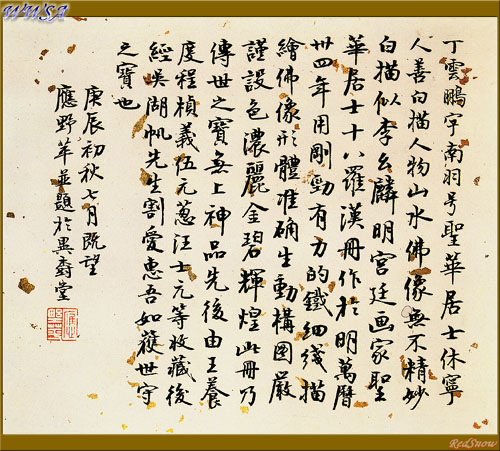 WWSA
丁雲鵬字南羽号聖華居士休寧
人善白描人物山水佛像無不精妙
白描似李公麟明宮廷画家聖
華居士十八羅漢冊作於明萬曆
卅四年用剛勁有力的鐵细线描
繪佛像形體准确生動構图嚴
謹設色濃麗金碧輝煌此冊乃
傳世之寶無上神品先後由王養
度程楨義伍元蕙汪士元等收藏後
經吳湖帆先生割愛惠吾如獲世守
之寶也
庚辰初秋七月既望
應野苹並題於壽堂
RedSnow